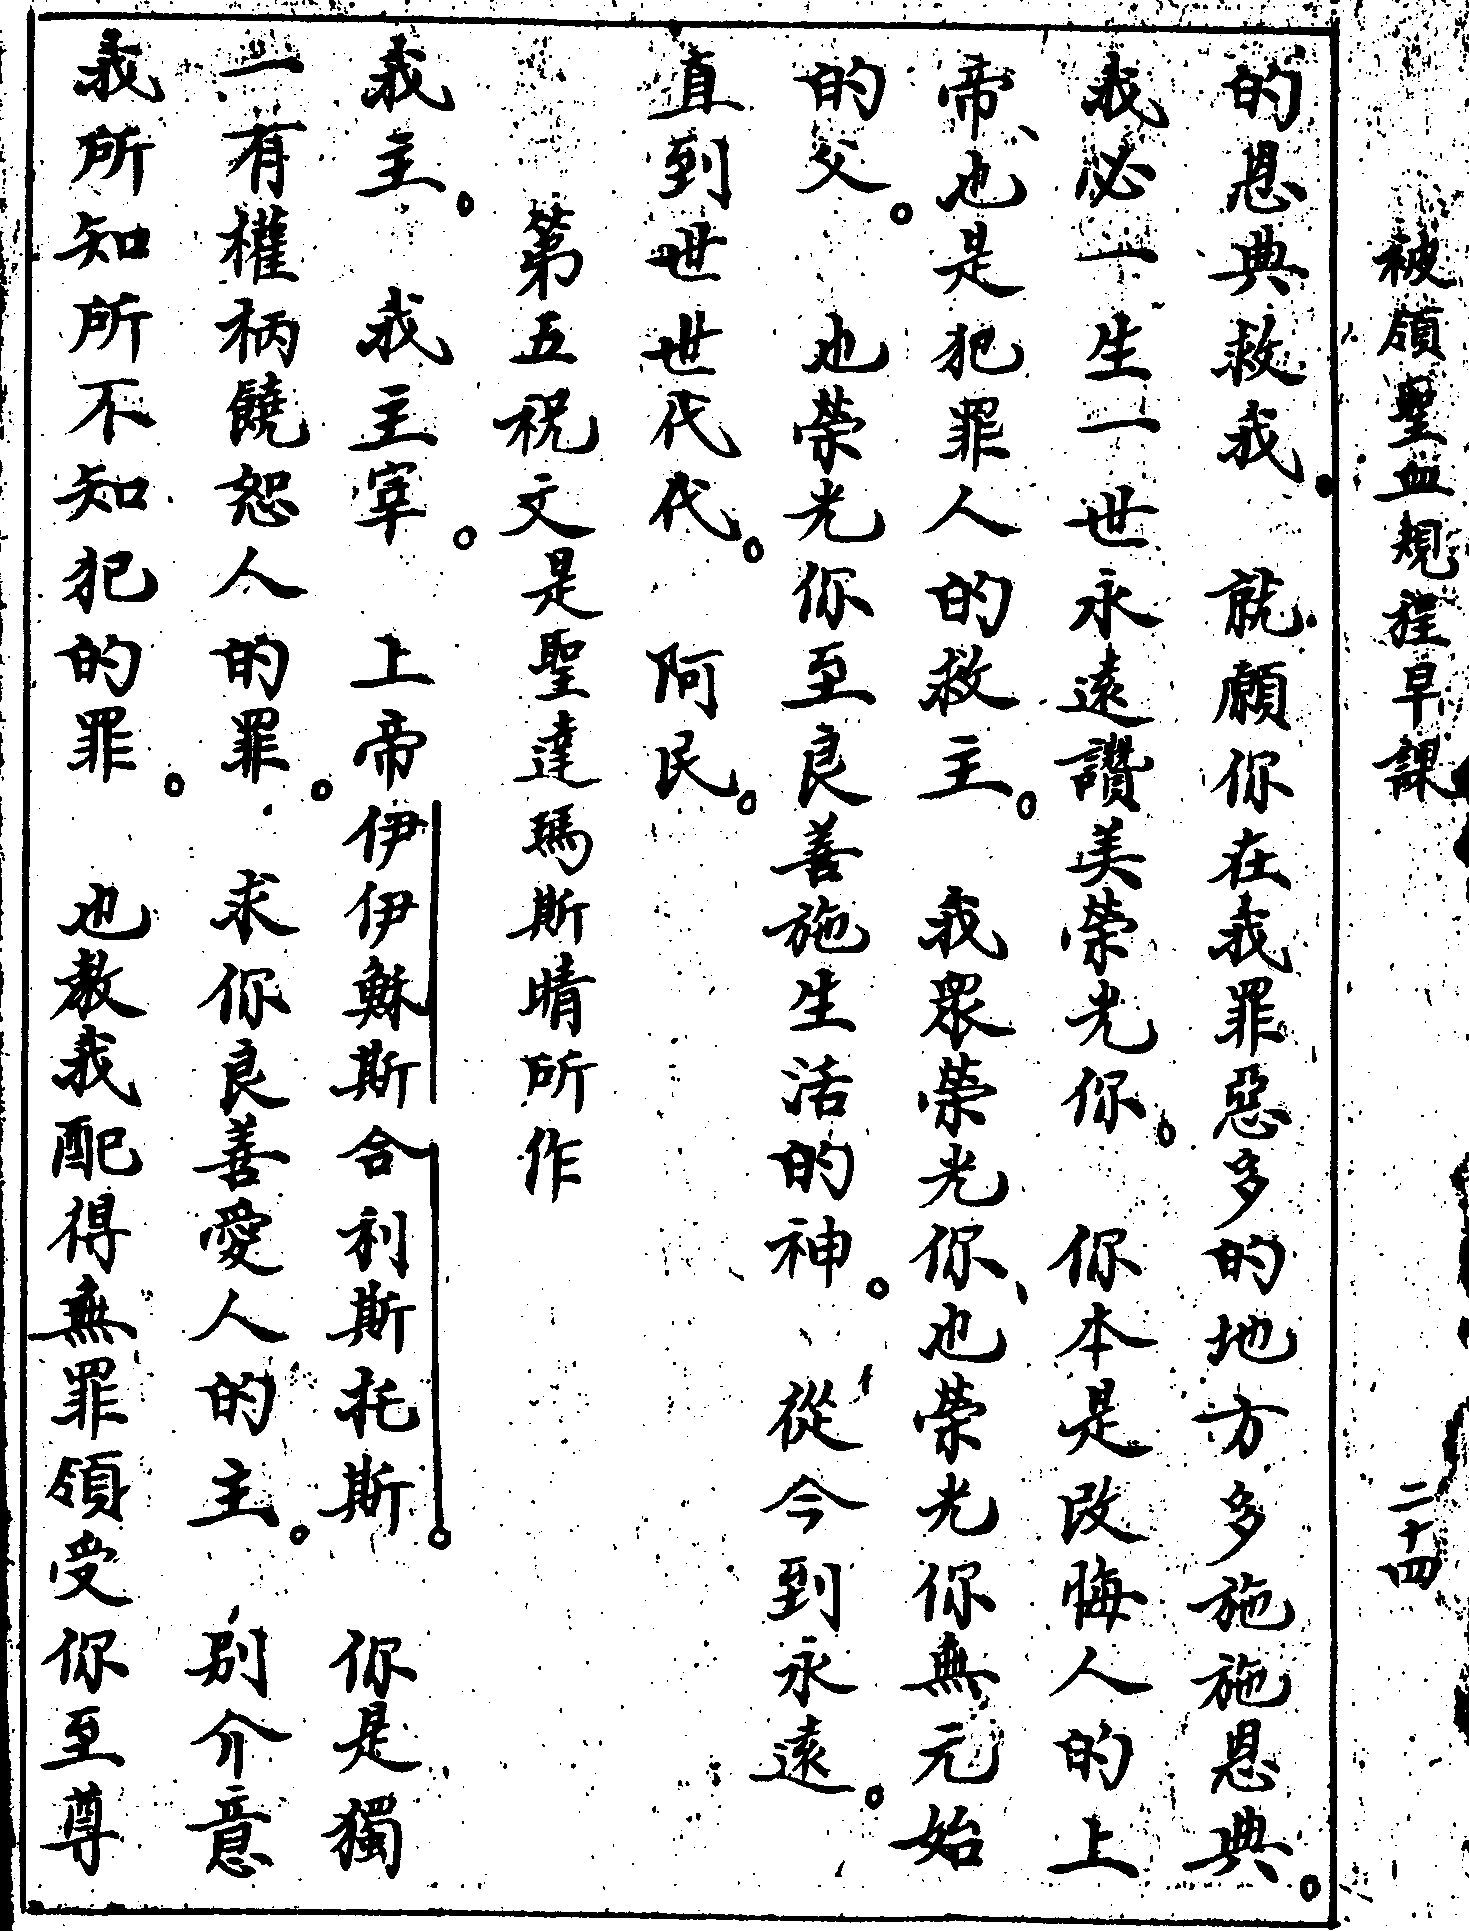 被領聖血規程早課 二十四
的恩典救我 就願你在我罪惡多的地方多施施恩典。
我必一生一世永遠讚美榮光你。 你本是改悔人的上
帝、也是犯罪人的救主。 我眾榮光你、也榮光你無元始
的父。 也榮光你至良善施生活的神。 從今到永遠。
直到世世世代代。 阿民。
第五祝文是聖達瑪斯晴所作
我主。 我主宰。 上帝伊伊穌斯合利斯托斯。 你是獨
一有權柄饒恕人的罪。 求你良善愛人的主。 別介意
我所知所不知犯的罪。 也教我配得無罪領受你至尊